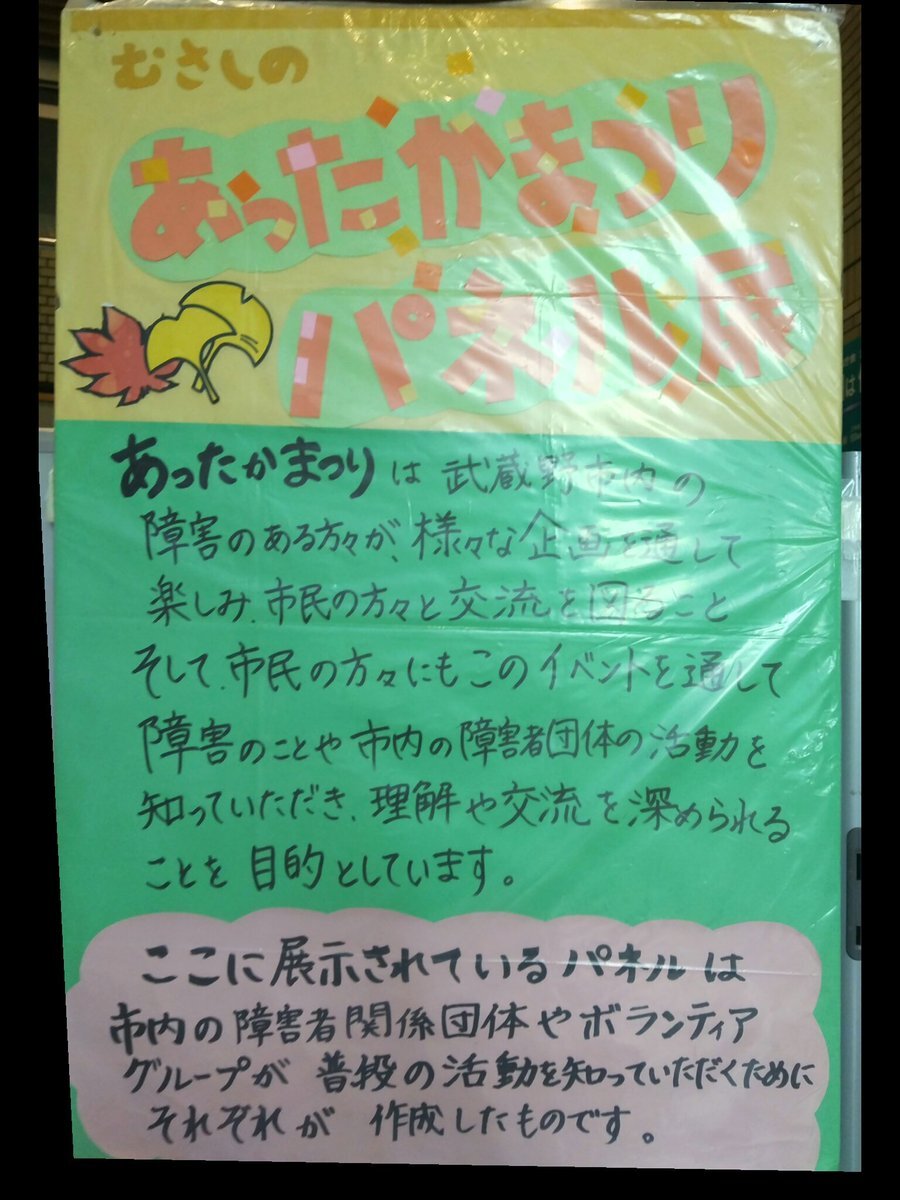 むさしの
あったかまつり
パネル展
あったかまつりは武蔵野市内の
障害のある方々が、様々な企画を通して
楽しみ、市民の方々と交流を図ること
そして、市民の方々にもこのイベントを通して
障害のことや市内の障害者団体の活動を
知っていただき、理解や交流を深められる
ことを目的としています。
ここに展示されているパネルは
市内の障害者関係団体やボランティア
グループが普段の活動を知っていただくために
それぞれが作成したものです。